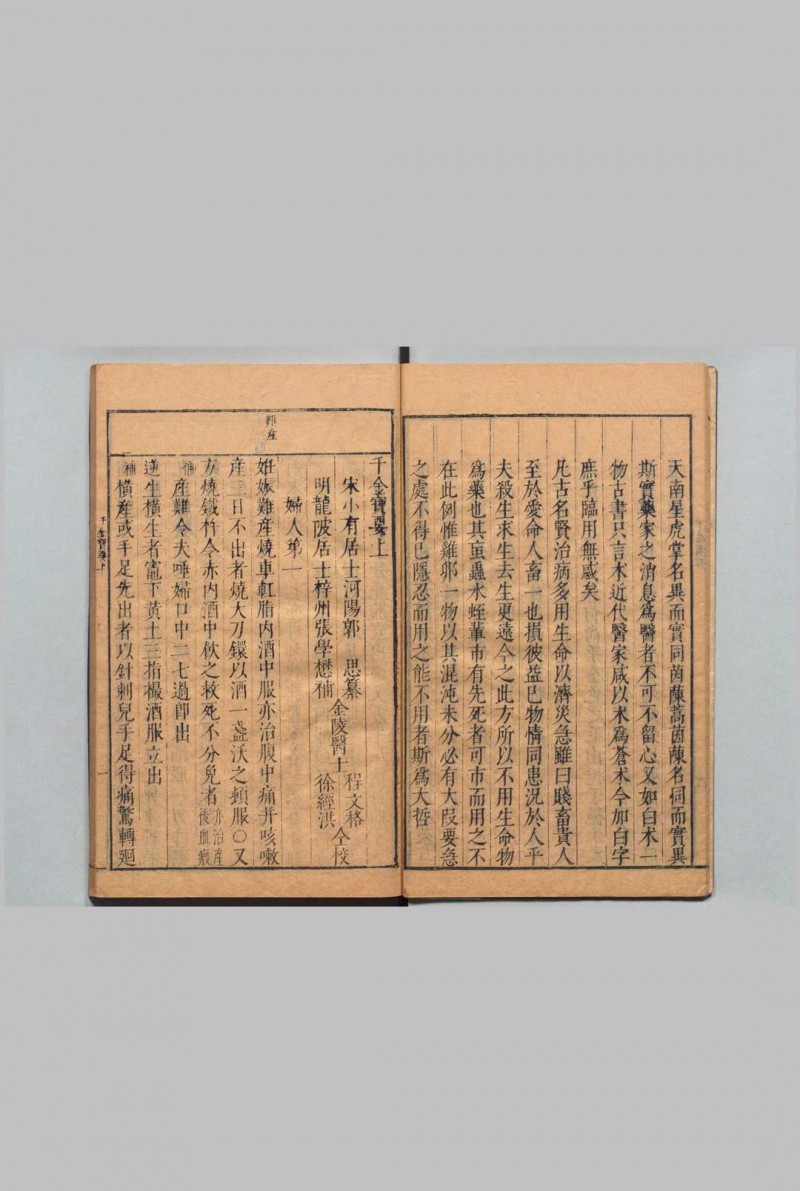 天南星虎掌名異而實同茵蔯蒿茵蔯名同而實異
斯實藥家之消息爲醫者不可不留心又如白术一
物古書只言术近代醫家咸以术爲蒼术今加白字
庶乎臨用無惑矣
凡古名賢治病多用生命以濟災急雖曰賤畜貴人
至於愛命人畜一也損彼益巳物情同患況於人乎
夫殺生求生去生更遠今之此方所以不用生命物
爲藥也其䖟蟲水蛭輩市有先死者可市而用之不
在此例惟雞卵一物以其混沌未分必有大叚要急
之處不得巳隱忍而用之能不用者斯爲大哲
卽產
千金寶要上
宋小有居士河陽郭 思纂
明龍陂居士梓州張學懋補
金陵醫士
程文格
徐經洪
仝校
婦人第一
妊娠難產燒車軭脂内酒中服亦治腹中痛并咳嗽
產三日不出者燒大刀鐶以酒一盞沃之頓服〇又
方燒鐵杵令赤内酒中飮之救死不分免者亦治產後血瘕
補產難令夫唾婦口中二七過卽出
逆生橫生者竈下黃土三指撮酒服立出
補橫產或手足先出者以針刺兒手足得痛驚轉廻
千金寶要上
一